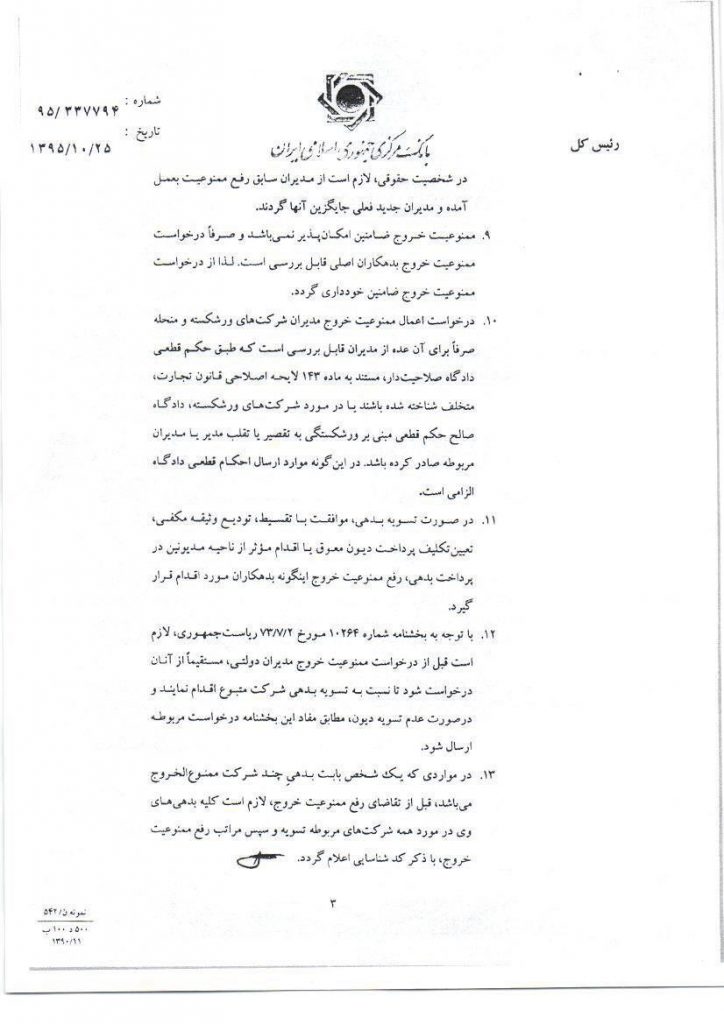 شماره : ۹۵/۳۳۷۷۹۴
تاریخ : ۱۳۹۵/۱۰/۲۵
بانک مرکزی جمهوری اسلامی ایران
رئیس کل
در شخصیت حقوقی، لازم است از مدیران سابق رفع ممنوعیت بعمل
آمده و مدیران جدید فعلی جایگزین آنها گردند.
۹. ممنوعیت خروج ضامنین امکان‌پذیر نمی‌باشد و صرفاً درخواست
ممنوعیت خروج بدهکاران اصلی قابل بررسی است. لذا از درخواست
ممنوعیت خروج ضامنین خودداری گردد.
۱۰. درخواست اعمال ممنوعیت خروج مدیران شرکت‌های ورشکسته و منحله
صرفاً برای آن عده از مدیران قابل بررسی است که طبق حکم قطعی
دادگاه صلاحیت‌دار، مستند به ماده ۱۴۳ لایحه اصلاحی قانون تجارت،
متخلف شناخته شده باشند یا در مورد شرکت‌های ورشکسته، دادگاه
صالح حکم قطعی مبنی بر ورشکستگی به تقصیر یا تقلب مدیر یا مدیران
مربوطه صادر کرده باشد. در این‌گونه موارد ارسال احکام قطعی دادگاه
الزامی است.
۱۱. در صورت تسویه بدهی، موافقت با تقسیط، تودیع وثیقه مکفی،
تعیین‌تکلیف پرداخت دیون معوق یا اقدام مؤثر از ناحیه مدیونین در
پرداخت بدهی، رفع ممنوعیت خروج اینگونه بدهکاران مورد اقدام قرار
گیرد.
۱۲. با توجه به بخشنامه شماره ۱۰۲۶۴ مورخ ۷۳/۷/۲ ریاست‌جمهوری، لازم
است قبل از درخواست ممنوعیت خروج مدیران دولتی، مستقیماً از آنان
درخواست شود تا نسبت به تسویه بدهی شرکت متبوع اقدام نمایند و
درصورت عدم تسویه دیون، مطابق مفاد این بخشنامه درخواست مربوطه
ارسال شود.
۱۳. در مواردی که یک شخص بابت بدهیِ چند شرکت ممنوع‌الخروج
می‌باشد، قبل از تقاضای رفع ممنوعیت خروج، لازم است کلیه بدهی‌های
وی در مورد همه شرکت‌های مربوطه تسویه و سپس مراتب رفع ممنوعیت
خروج، با ذکر کد شناسایی اعلام گردد.
۳
نمونه ن/۵۴۲
۵۰۰ د ۱۰۰ ب
۱۳۹۰/۱۱